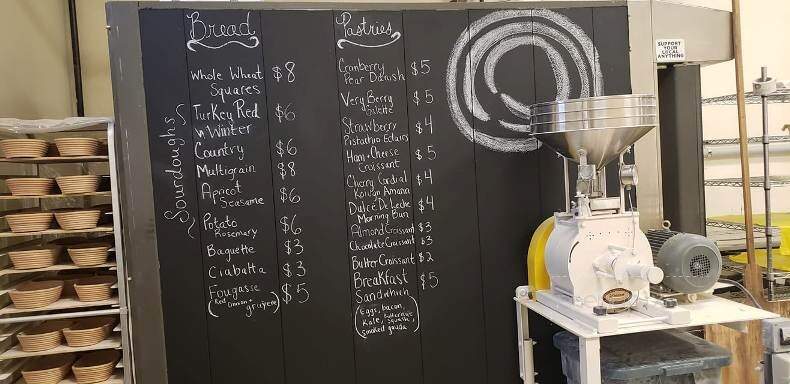 Bread
Whole Wheat $8
Squares
Sourdoughs
Turkey Red $6
w Winter
Country $6
Multigrain $8
Apricot $6
Seasame
Potato $6
Rosemary
Baguette $3
Ciabatta $3
Fougasse $5
(Red Onion +
gruyere)
Pastries
Cranberry $5
Pear Danish
Very Berry $5
Galette
Strawberry $4
Pistathio Eclairs
Ham + Cheese $5
Croissant
Cherry Cordial $4
Kouign Amann
Dulce De Leche $4
Morning Bun
Almond Croissant $3
Chocolate Croissant $3
Butter Croissant $2
Breakfast $5
Sandwhich
(Eggs, bacon,
Butternut
Kale, Squash,
smoked gouda)
SUPPORT
YOUR
LOCAL
ANYTHING